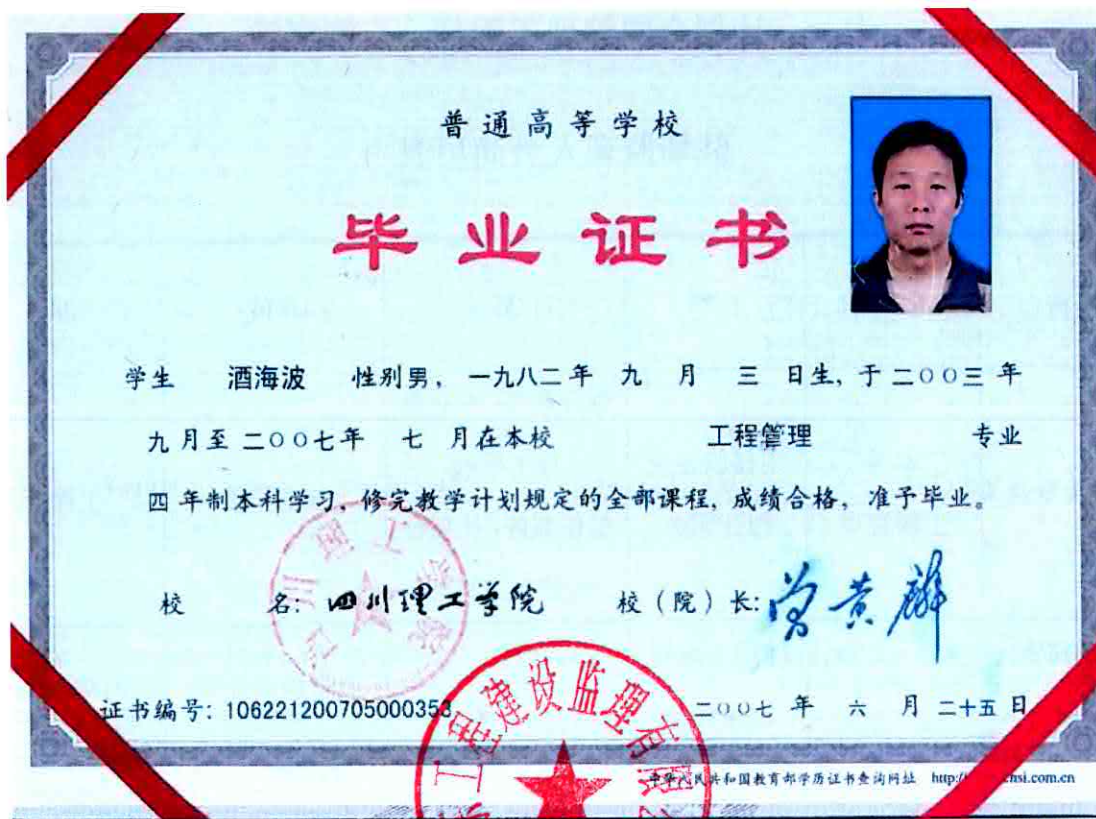 普通高等学校
毕业证书
学生 酒海波 性别男，一九八二年 九 月 三 日生，于二〇〇三 年
九 月至 二〇〇七年 七 月在本校 工程管理 专业
四 年制本科学习，修完教学计划规定的全部课程，成绩合格，准予毕业。
校 名：四川理工学院 校（院）长：曾黄麟
四川理工学院
证书编号：106221200705000353 二〇〇七 年 六 月 二十五 日
工程建设监理有限
中华人民共和国教育部学历证书查询网址 http:// chsi.com.cn